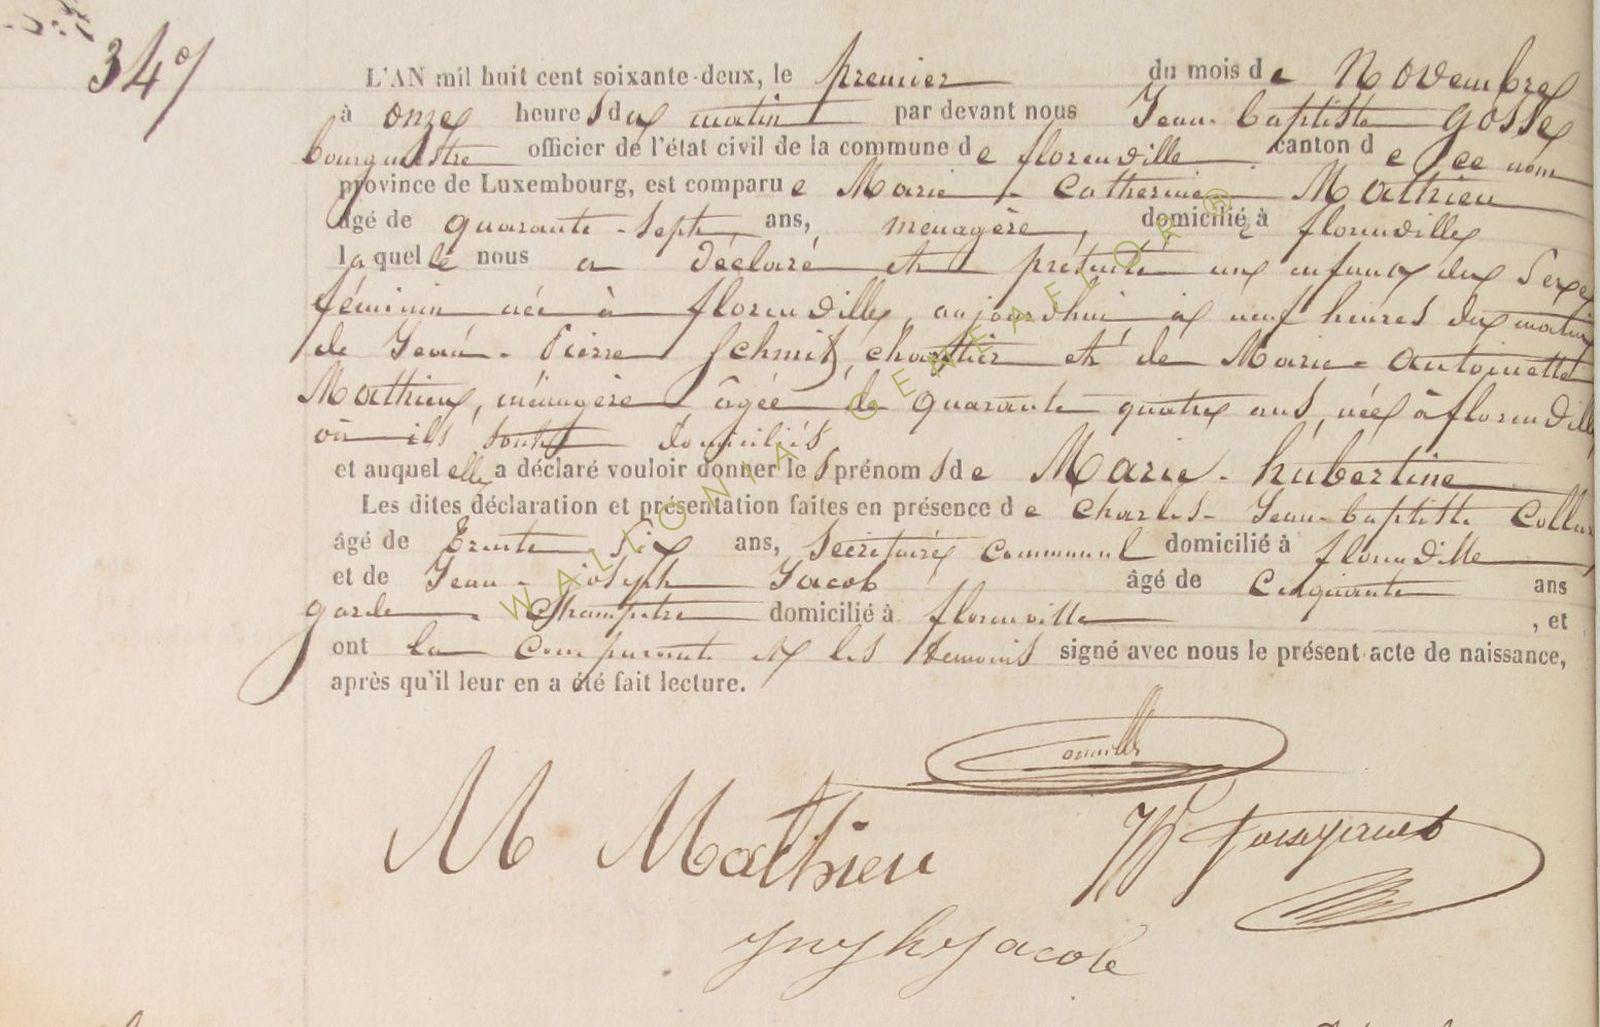 34
L'AN mil huit cent soixante-deux, le premier du mois de Novembre
à onze heures du matin par devant nous Jean-baptiste Gosse
bourgmestre officier de l'état civil de la commune de florenville canton de ce nom
province de Luxembourg, est comparue Marie-Catherine Mathieu
âgé de quarante-sept ans, menagère, domicilié à florenville
laquelle nous a déclaré et présenté un enfant du Sexe
féminin née à florenville, aujourdhui à neuf heures du matin
de Jean-Pierre Schmit, chartier et de Marie-antoinette
Mathieu, ménagère âgée de quarante quatre ans, née à florenville
où ils sont domiciliés
et auquel elle a déclaré vouloir donner les prénoms de Marie-hubertine
Les dites déclaration et présentation faites en présence de Charles-Jean-baptiste
âgé de Trente six ans, Secretaire Communal domicilié à florenville
et de Jean-joseph Jacob âgé de Cinquante ans
garde-Champetre domicilié à florenville, et
ont la Comparante et les temoins signé avec nous le présent acte de naissance,
après qu'il leur en a été fait lecture.
M Mathieu
Jacob
WALLONIA GENEAFLOR ©